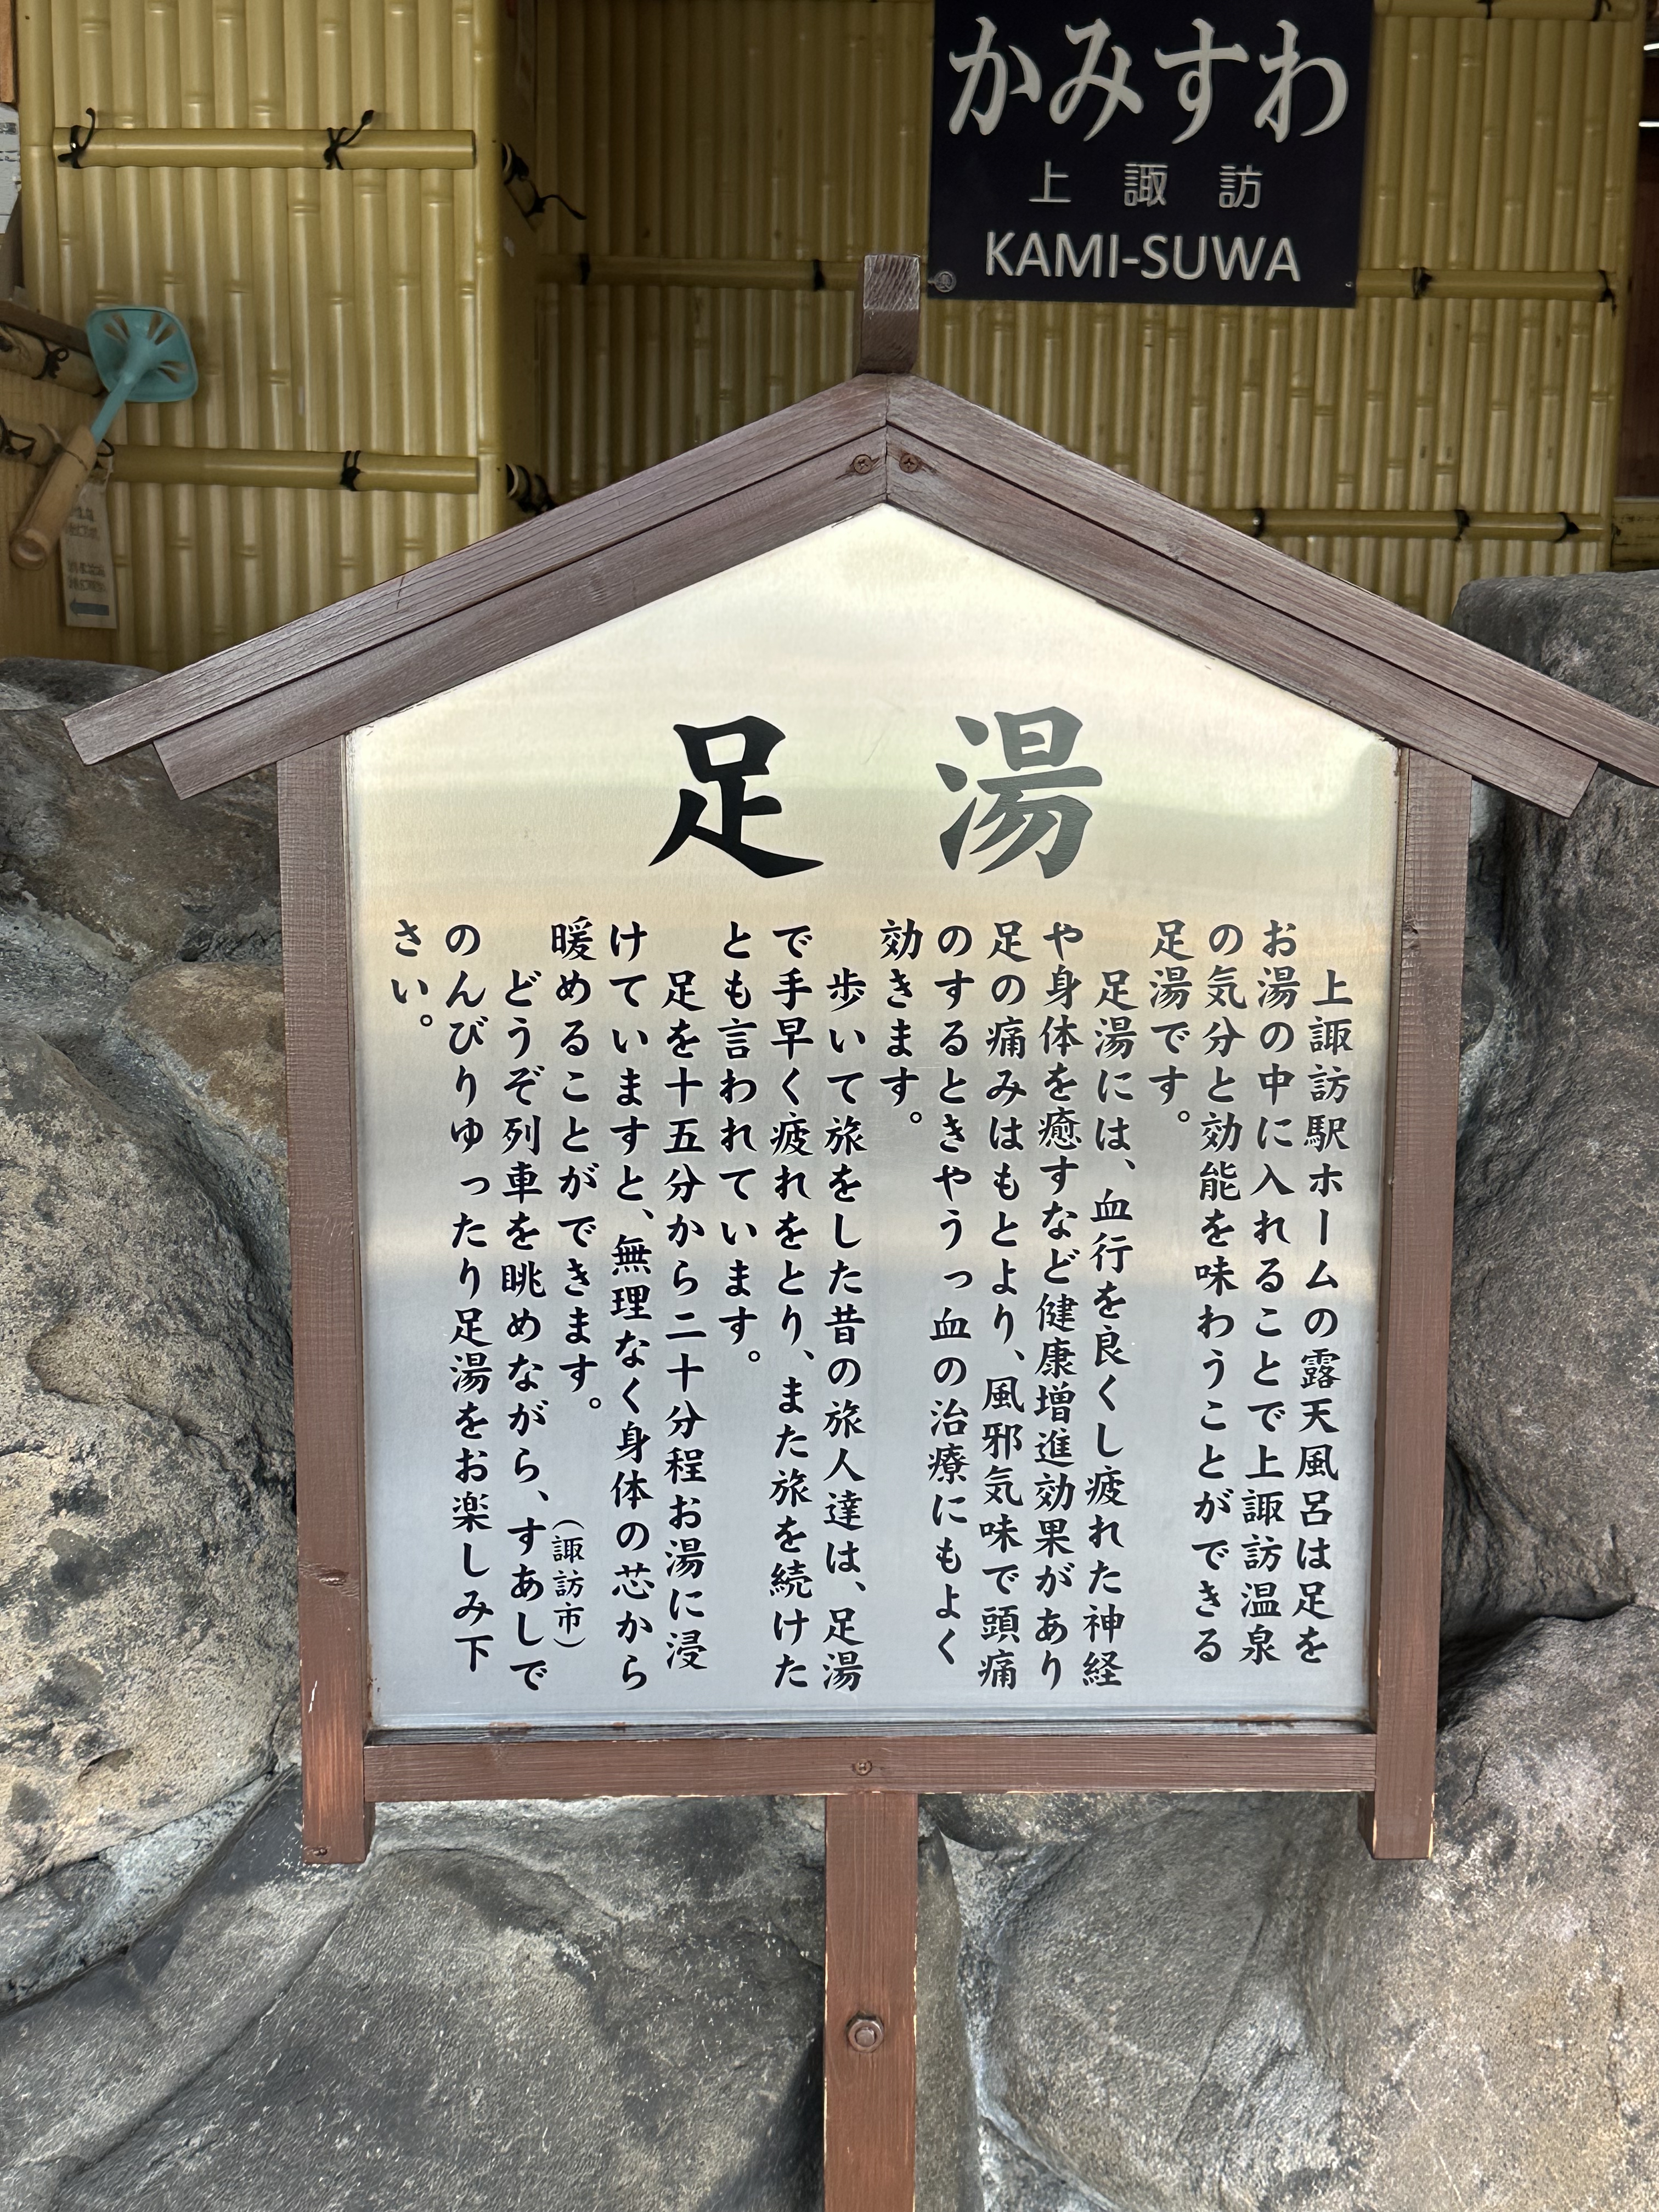 かみすわ
上諏訪
KAMI-SUWA
足湯
上諏訪駅ホームの露天風呂は足を
お湯の中に入れることで上諏訪温泉
の気分と効能を味わうことができる
足湯です。
足湯には、血行を良くし疲れた神経
や身体を癒すなど健康増進効果があり
足の痛みはもとより、風邪気味で頭痛
のするときやうっ血の治療にもよく
効きます。
歩いて旅をした昔の旅人達は、足湯
で手早く疲れをとり、また旅を続けた
とも言われています。
足を十五分から二十分程お湯に浸
けていますと、無理なく身体の芯から
暖めることができます。
(諏訪市)
どうぞ列車を眺めながら、すあしで
のんびりゆったり足湯をお楽しみ下
さい。